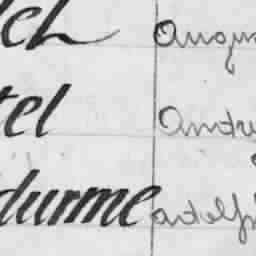 leh Augu
tel Andre
durme adolf